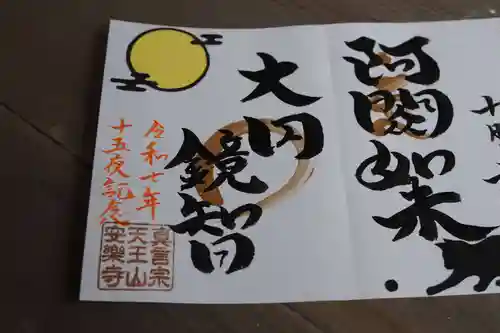 阿閦如来
大円
鏡智
令和七年
十五夜記念
真言宗
天王山
安樂寺